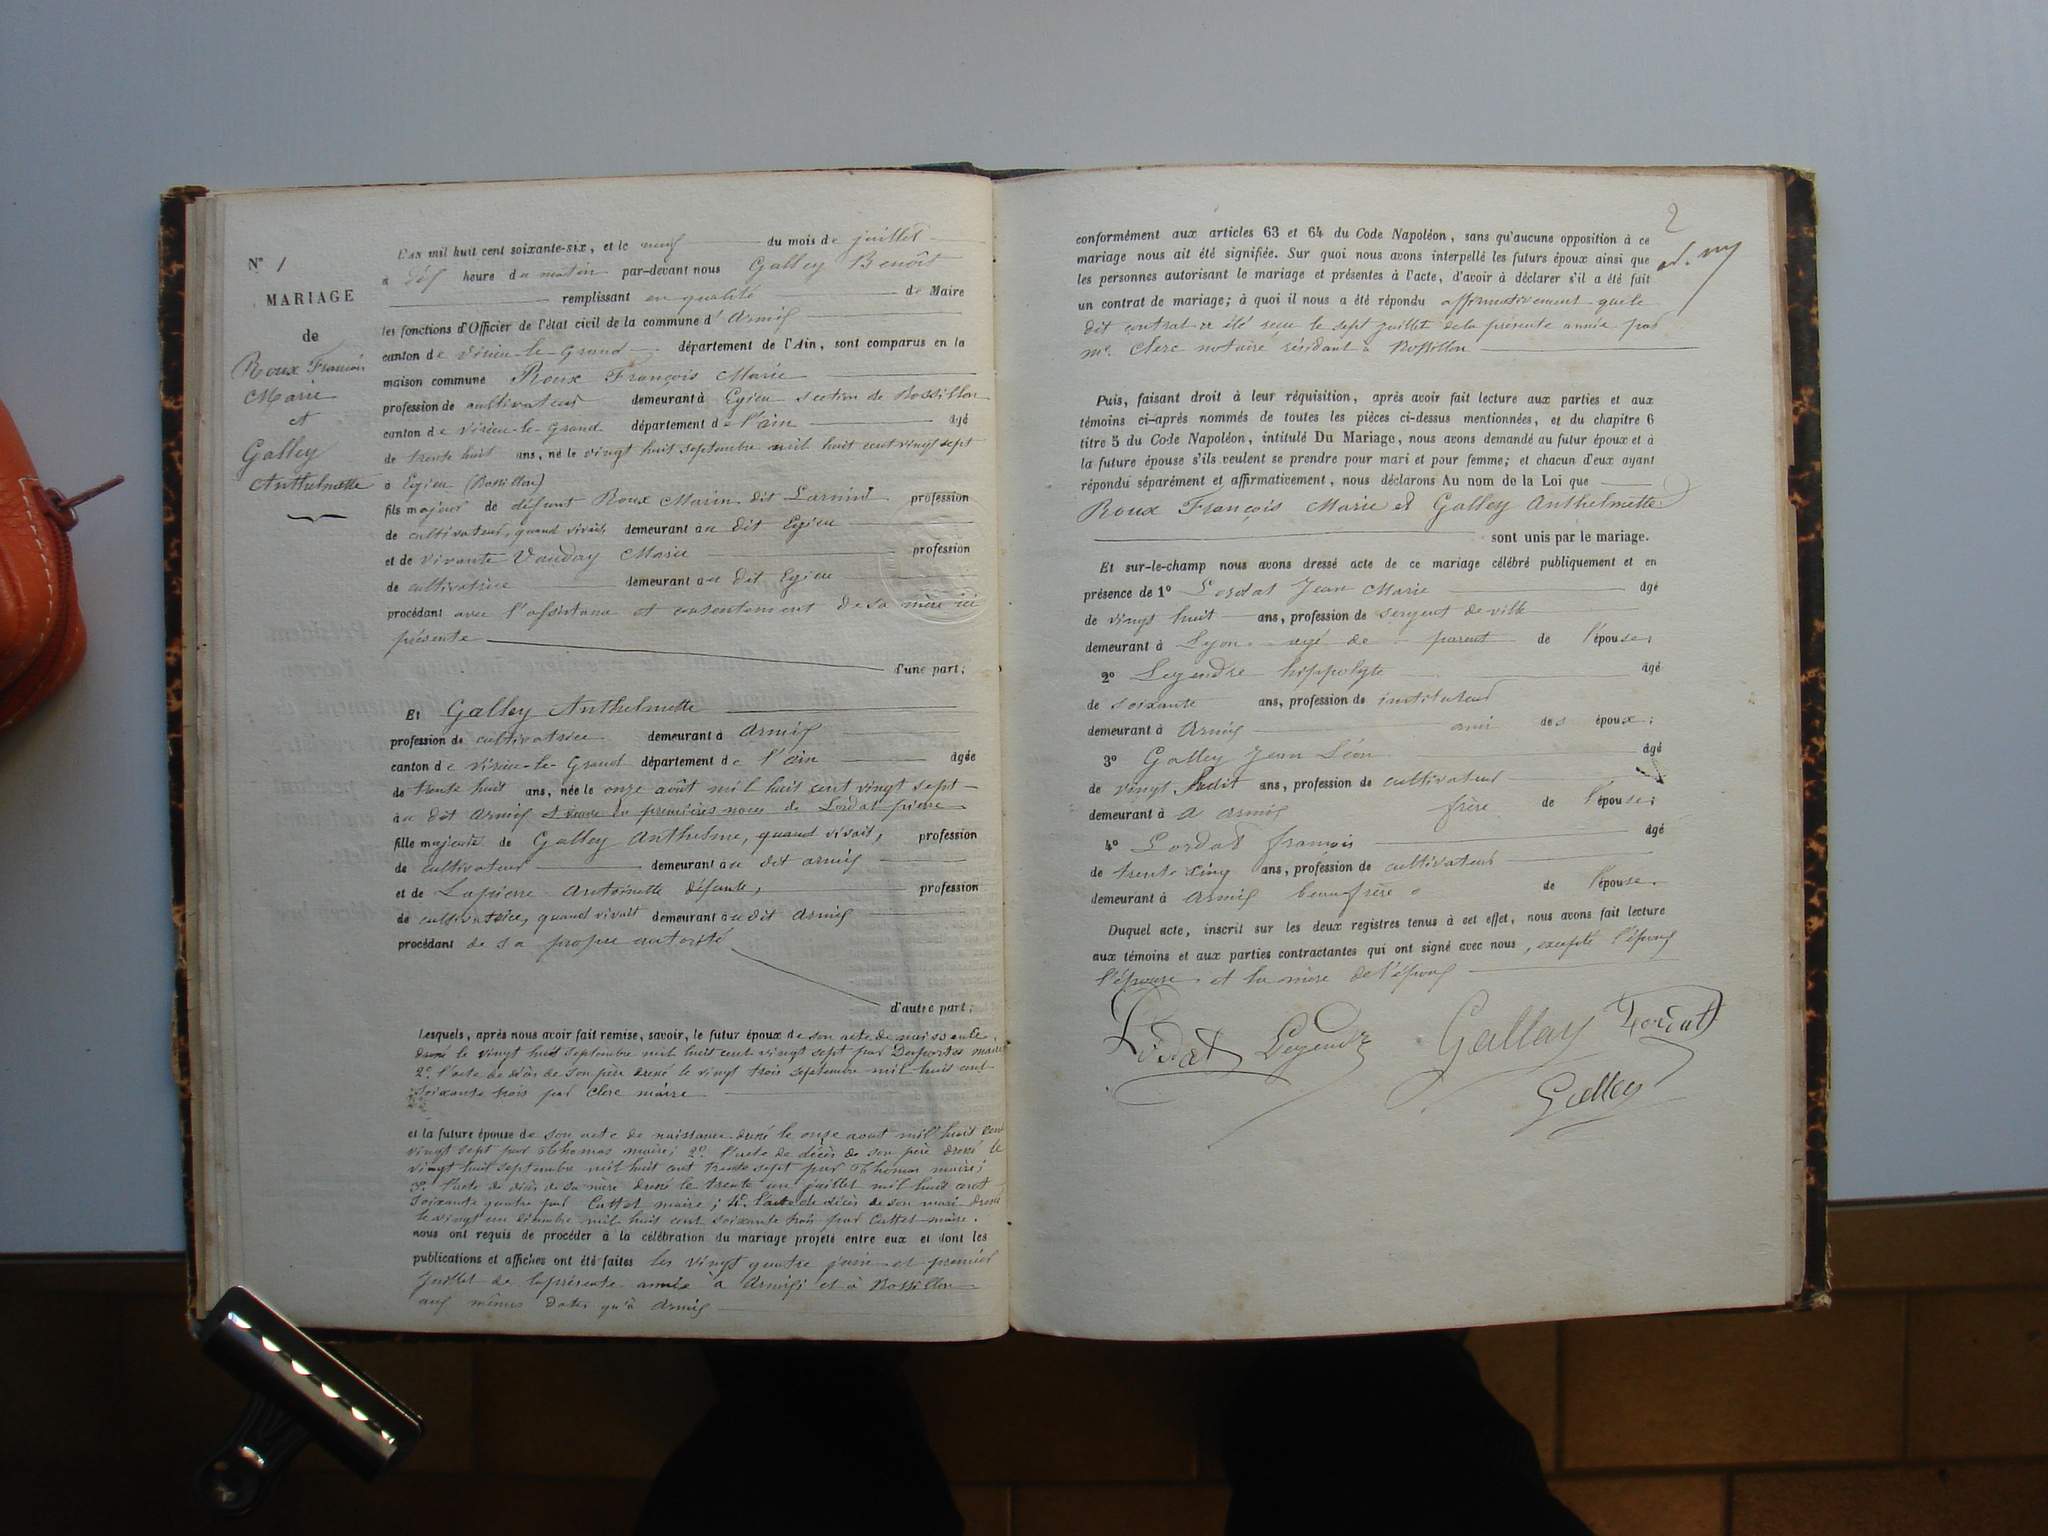 N° 1
MARIAGE
de
Roux François
Marie
et
Galley
Anthelmette
L'AN mil huit cent soixante-six, et le neuf du mois de juillet
à dix heure du matin par-devant nous Galley Benoît
remplissant en qualité de Maire
les fonctions d'Officier de l'état civil de la commune d'Armix
canton de Virieu-le-Grand département de l'Ain, sont comparus en la
maison commune Roux François Marie
profession de cultivateur demeurant à Egieu section de Rossillon
canton de Virieu-le-Grand département de l'ain âgé
de trente huit ans, né le vingt huit septembre mil huit cent vingt sept
à Egieu (Rossillon)
fils majeur de défunt Roux Marin dit profession
de cultivateur, quand vivait, demeurant au dit Egieu
et de vivante Vauday Marie profession
de cultivatrice demeurant au dit Egieu
procédant avec l'assistance et consentement de sa mère ici
présente d'une part;
Et Galley Anthelmette
profession de cultivatrice demeurant à Armix
canton de Virieu-le-Grand département de l'ain âgée
de trente huit ans, née le onze août mil huit cent vingt sept
au dit Armix veuve en premières noces de Lordat pierre
fille majeure de Galley Anthelme, quand vivait, profession
de cultivateur demeurant au dit armix
et de Lapierre Antoinette défunte, profession
de cultivatrice, quand vivait demeurant au dit Armix
procédant de sa propre autorité
d'autre part;
Lesquels, après nous avoir fait remise, savoir, le futur époux de son acte de naissance
dressé le vingt huit septembre mil huit cent vingt sept par Desportes maire
2° l'acte de décès de son père dressé le vingt trois septembre mil huit cent
soixante trois par Clerc maire
et la future épouse de son acte de naissance dressé le onze aout mil huit cent
vingt sept par Thomas maire; 2° l'acte de décès de son père dressé le
vingt huit septembre mil huit cent trente sept par Thomas maire;
3° l'acte de décès de sa mère dressé le trente un juillet mil huit cent
soixante quatre par Cattet maire; 4° l'acte de décès de son mari dressé
le vingt un décembre mil huit cent soixante trois par Cattet maire.
nous ont requis de procéder à la célébration du mariage projeté entre eux et dont les
publications et affiches ont été faites les vingt quatre juin et premier
Juillet de la présente année à Armix et à Rossillon
aux mêmes dates qu'à Armix
2
conformément aux articles 63 et 64 du Code Napoléon, sans qu'aucune opposition à ce
mariage nous ait été signifiée. Sur quoi nous avons interpellé les futurs époux ainsi que
les personnes autorisant le mariage et présentes à l'acte, d'avoir à déclarer s'il a été fait
un contrat de mariage; à quoi il nous a été répondu affirmativement que le
dit contrat a été reçu le sept juillet de la présente année par
me. Clerc notaire résidant à Rossillon
Puis, faisant droit à leur réquisition, après avoir fait lecture aux parties et aux
témoins ci-après nommés de toutes les pièces ci-dessus mentionnées, et du chapitre 6
titre 5 du Code Napoléon, intitulé Du Mariage, nous avons demandé au futur époux et à
la future épouse s'ils veulent se prendre pour mari et pour femme; et chacun d'eux ayant
répondu séparément et affirmativement, nous déclarons Au nom de la Loi que
Roux François Marie et Galley Anthelmette
sont unis par le mariage.
Et sur-le-champ nous avons dressé acte de ce mariage célébré publiquement et en
présence de 1° Lordat Jean Marie âgé
de vingt huit ans, profession de sergent de ville
demeurant à Lyon parent de l'épouse;
2° Legendre hippolyte âgé
de soixante ans, profession de instituteur
demeurant à Armix ami des époux;
3° Galley Jean Léon âgé
de vingt huit ans, profession de cultivateur
demeurant à a armix frère de l'épouse;
4° Lordat françois âgé
de trente cinq ans, profession de cultivateur
demeurant à armix beau-frère de l'épouse.
Duquel acte, inscrit sur les deux registres tenus à cet effet, nous avons fait lecture
aux témoins et aux parties contractantes qui ont signé avec nous, excepté l'époux
l'épouse et la mère de l'époux
Lordat Legendre Galley Lordat
Galley